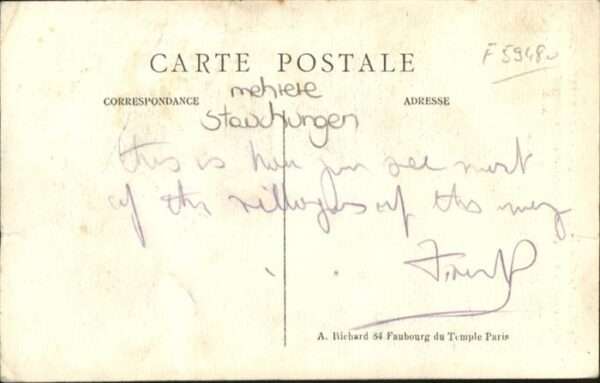 CARTE POSTALE
F 5948
CORRESPONDANCE
ADRESSE
mehrere
Stauchungen
this is how you see most
of the villages of the way
A. Richard 84 Faubourg du Temple Paris